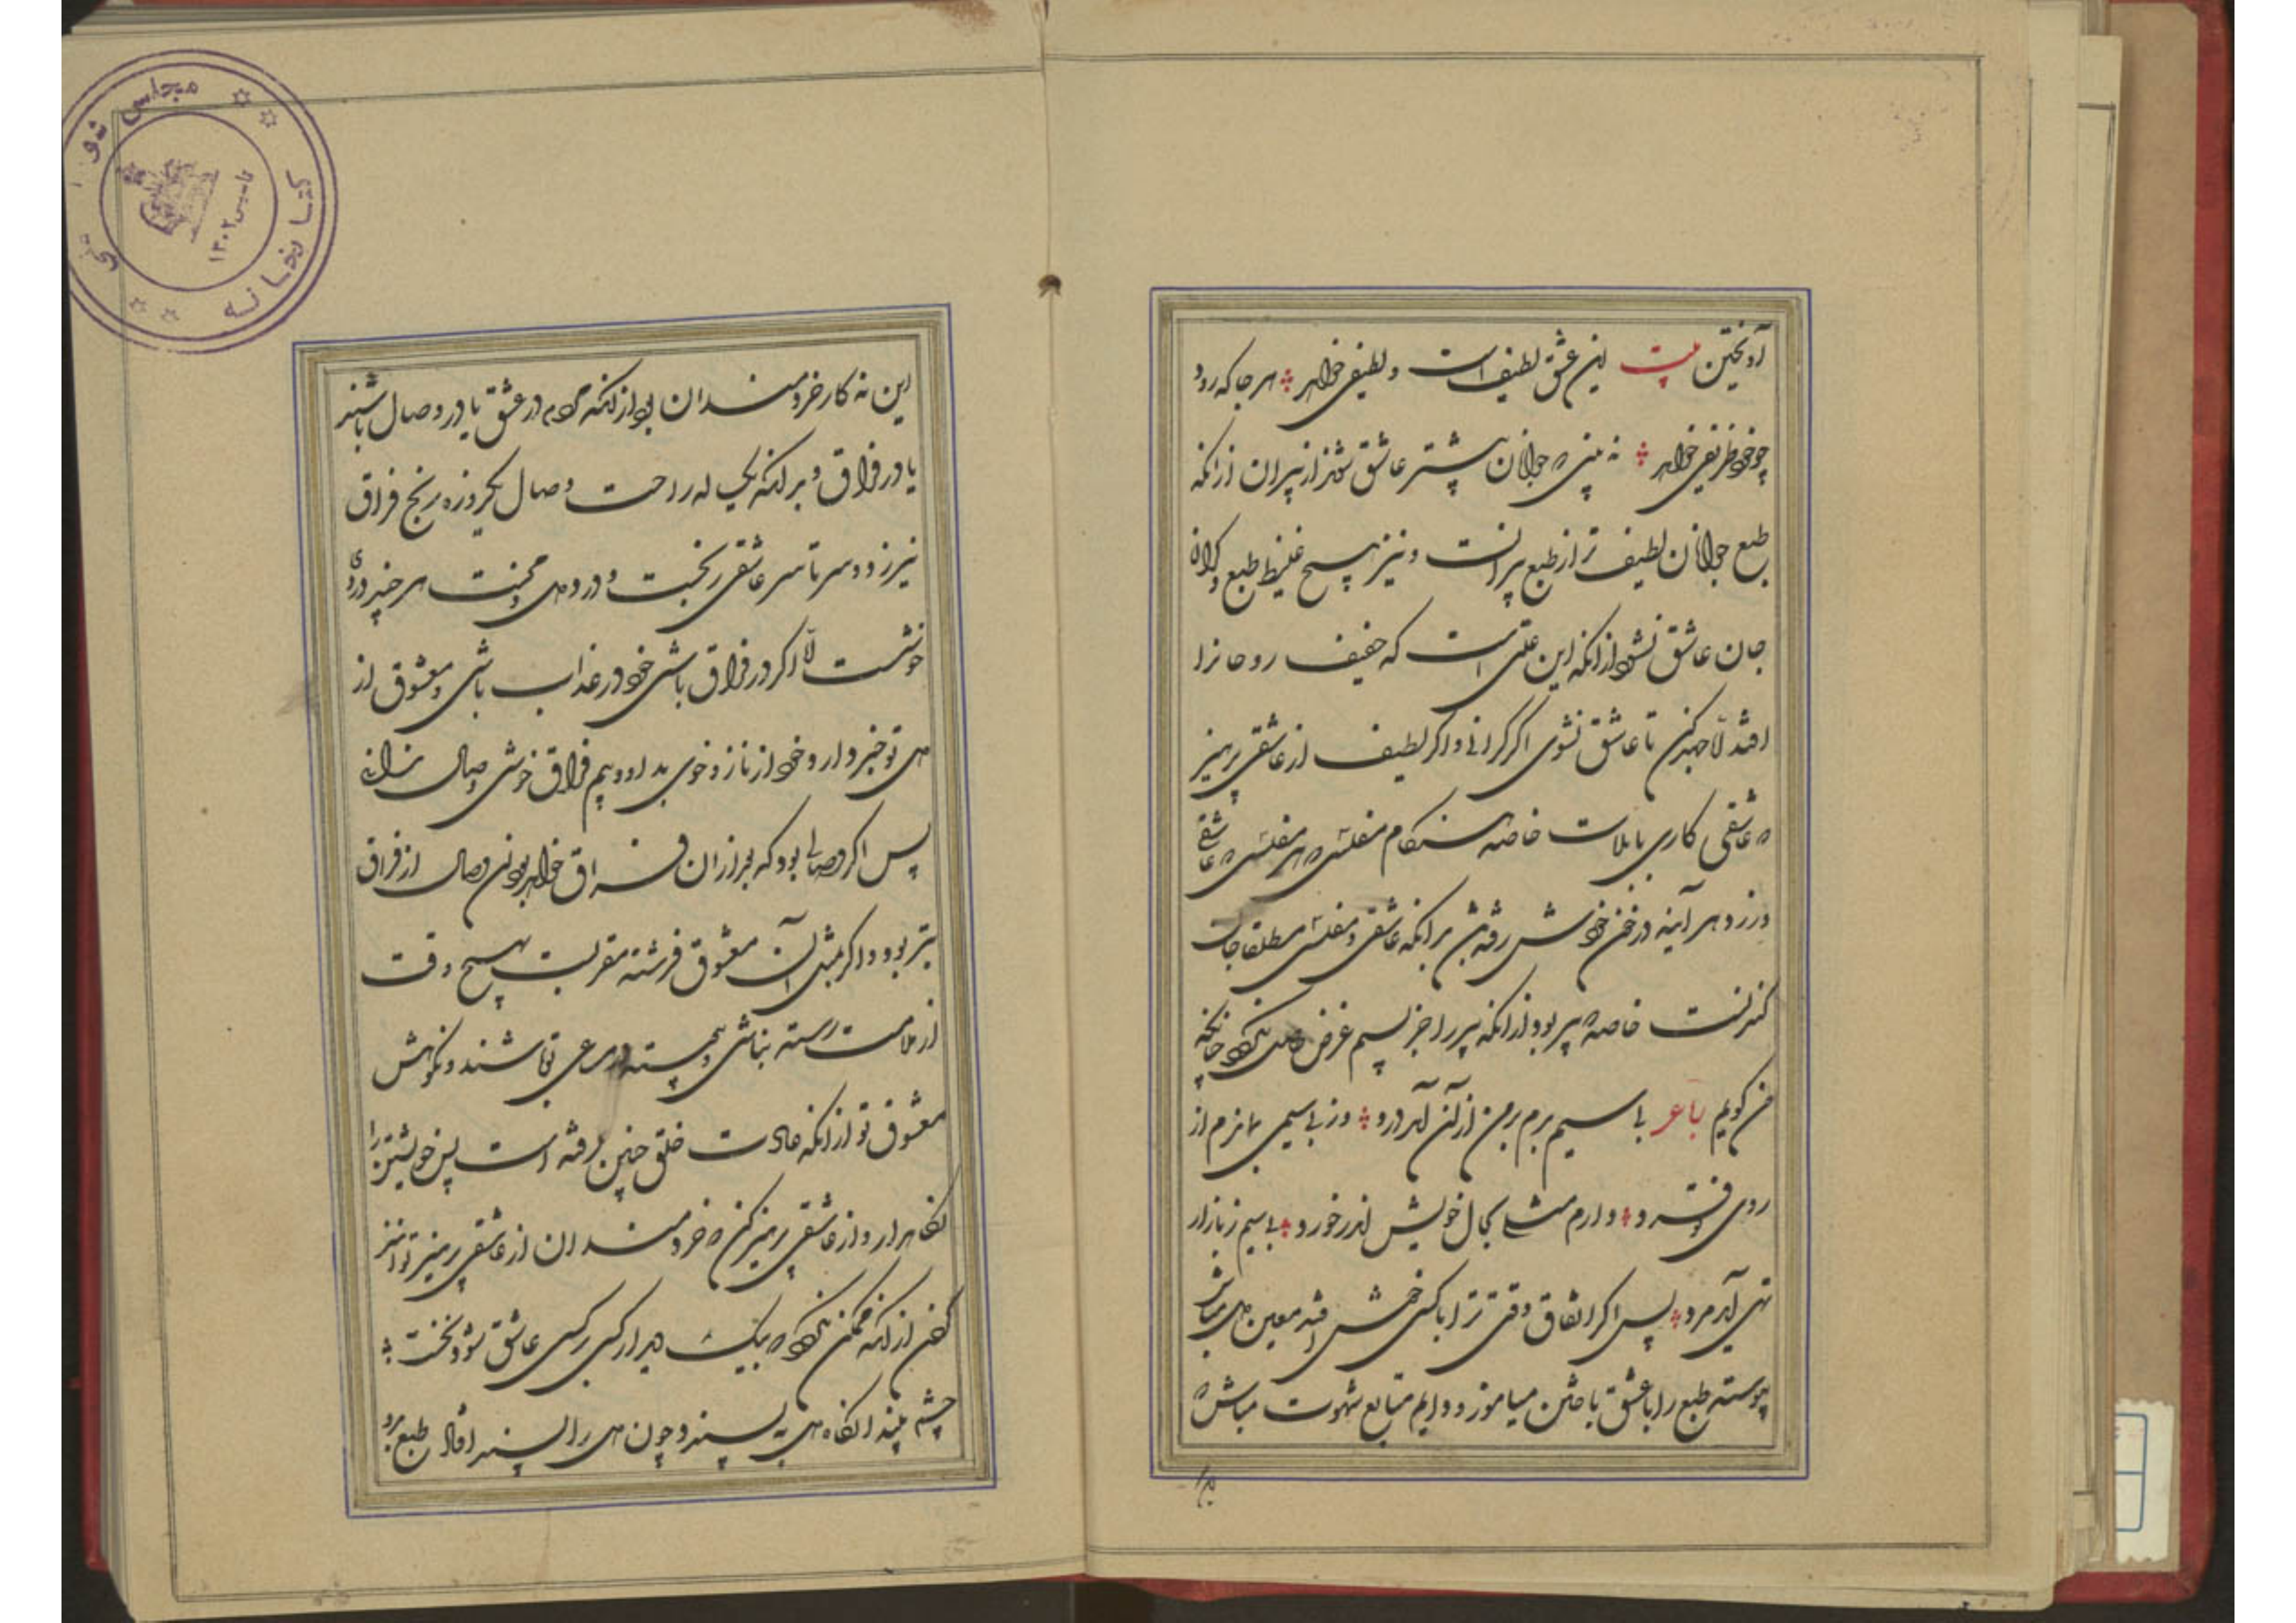 آویختن بیت این عشق لطیف است و لطیفی خواهد هر جا که رود
چو خود ظریفی خواهد نه بینی که جوانان بیشتر عاشق شوند از پیران از آنکه
طبع جوانان لطیف تر از طبع پیرانست و نیز هیچ غلیظ طبع و گران
جان عاشق نشود از آنکه این علتی است که خفیف روحانرا
افتد الا جهد کن تا عاشق نشوی اگر گرانی و اگر لطیف از عاشقی پرهیز
که عاشقی کاری با بلاست خاصه هنگام مفلسی که هر مفلسی که عاشقی
ورزد هر آینه در خون خویش رفته باشد بدانکه عاشقی و مفلسی مطلقا جان
کندنست خاصه که پیر بود از آنکه پیر را جز بسیم غرض حاصل نگردد چنانکه
من گویم رباعی بی سیم بدم بر من از آن آمد درد وز بی سیمی بماندم از
روی تو فرد دارم مثلی بحال خویش اندر خورد بی سیم ز بازار
تهی آید مرد پس اگر اتفاق وقتی ترا با کسی خوش افتد معین دل مباش
پیوسته طبع را با عشق باختن میاموز و دایم متابع شهوت مباش که
این نه کار خردمندان بود از آنکه مردم در عشق یا در وصال باشند
یا در فراق و بدانکه یک ساله راحت وصال بیکروزه رنج فراق
نیرزد و سر تا سر عاشقی رنجست و درد دل و محنت هر چند دردی
خوشست الا اگر در فراق باشی خود در عذاب باشی و معشوق از
دل تو خبر دارد و خود از ناز و خوی بد او و بیم فراق خوشی وصال ندانی
پس اگر وصالی بود که بعد از آن فراق خواهد بودن وصال از فراق
بتر بود و اگر بمثل آن معشوق فرشته مقربست بهیچ وقت
از ملامت رسته نباشی و پیوسته در مساوی تو باشند و نکوهش
معشوق تو از آنکه عادت خلق چنین رفته است پس خویشتن را
نگاه دار و از عاشقی پرهیز کن که خردمندان از عاشقی پرهیز توانند
کردن از آنکه ممکن نگردد که بیک دیدار کسی بر کسی عاشق شود نخست
چشم بیند آنگاه دل بپسندد چون دل را پسند افتاد طبع بدو
کتابخانه مجلس شورای ملی
تاسیس ۱۳۰۲